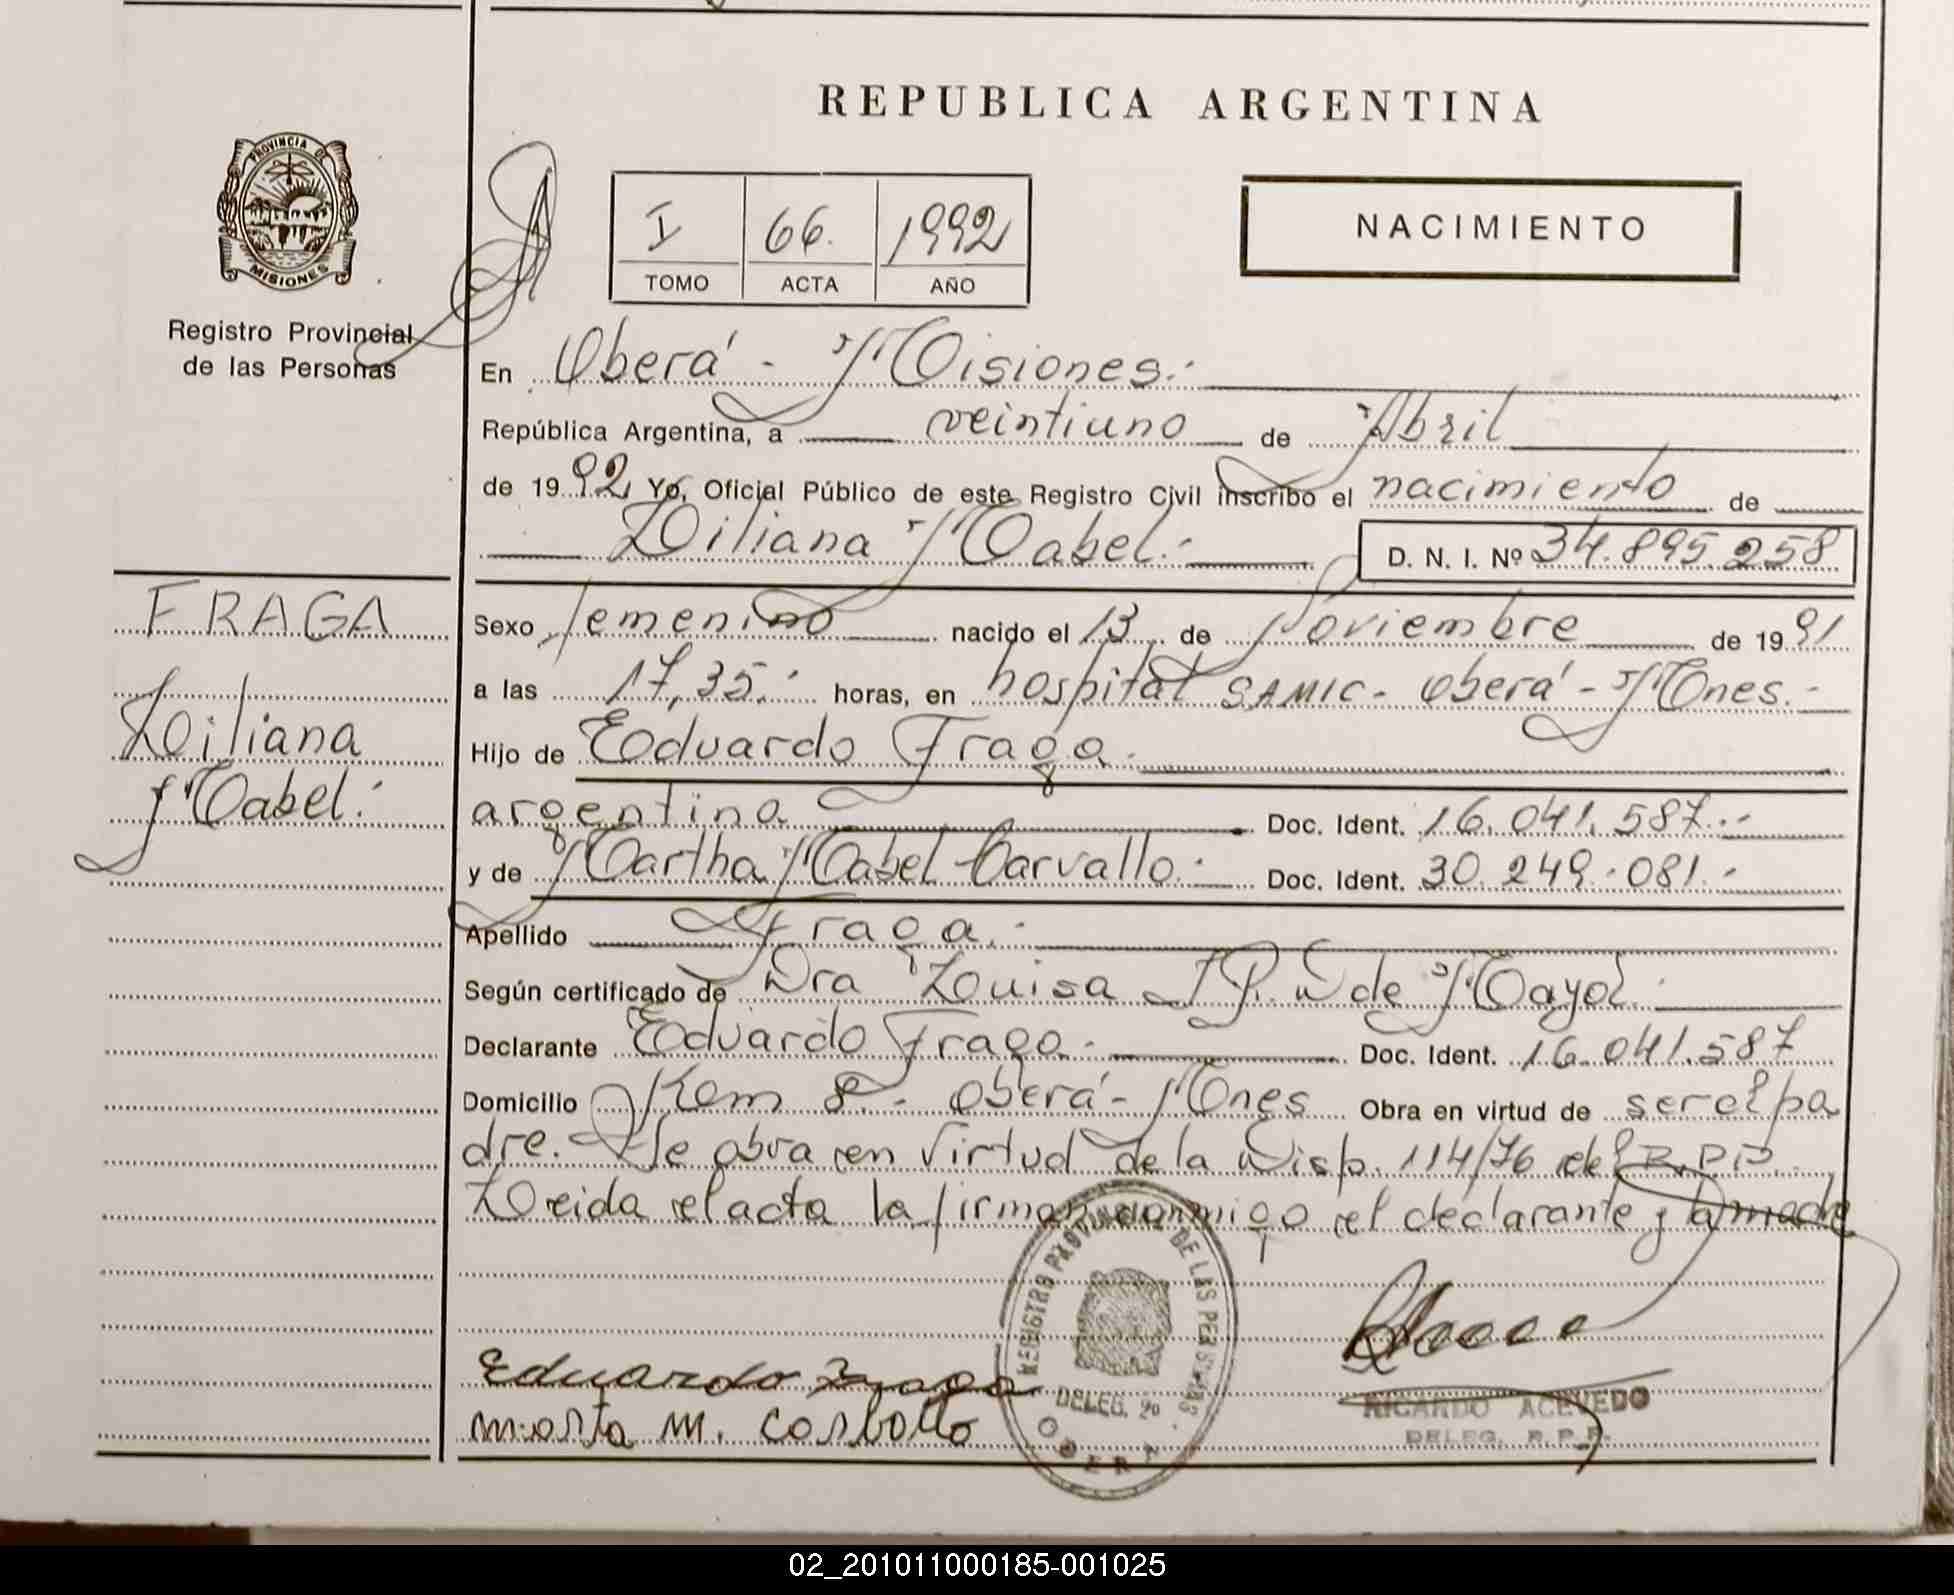 REPUBLICA ARGENTINA
PROVINCIA DE
MISIONES
Registro Provincial
de las Personas
I 66. 1992
TOMO ACTA AÑO
NACIMIENTO
En Oberá - Misiones.-
República Argentina, a veintiuno de Abril
de 1992 Yo, Oficial Público de este Registro Civil inscribo el nacimiento de
Liliana Mabel.- D. N. I. Nº 34.895.258
FRAGA
Liliana
Mabel.-
Sexo femenino nacido el 13 de Noviembre de 1991
a las 17,35.- horas, en hospital SAMIC - Oberá - Mnes.-
Hijo de Eduardo Fraga.
argentina Doc. Ident. 16.041.587.-
y de Martha Mabel Carvallo.- Doc. Ident. 30.249.081.-
Apellido Fraga.-
Según certificado de Dra Luisa de Mayol.
Declarante Eduardo Fraga.- Doc. Ident. 16.041.587
Domicilio Kem 8.- Oberá - Mnes Obra en virtud de ser el pa
dre. Se obra en virtud de la Disp. 114/76 del R.P.P.
Leida el acta la firman conmigo el declarante y la madre
REGISTRO PROVINCIAL DE LAS PERSONAS
DELEG.
OBERA
Eduardo Fraga
marta m. Carballo
RICARDO ACEVEDO
DELEG. R.P.P.
02_201011000185-001025